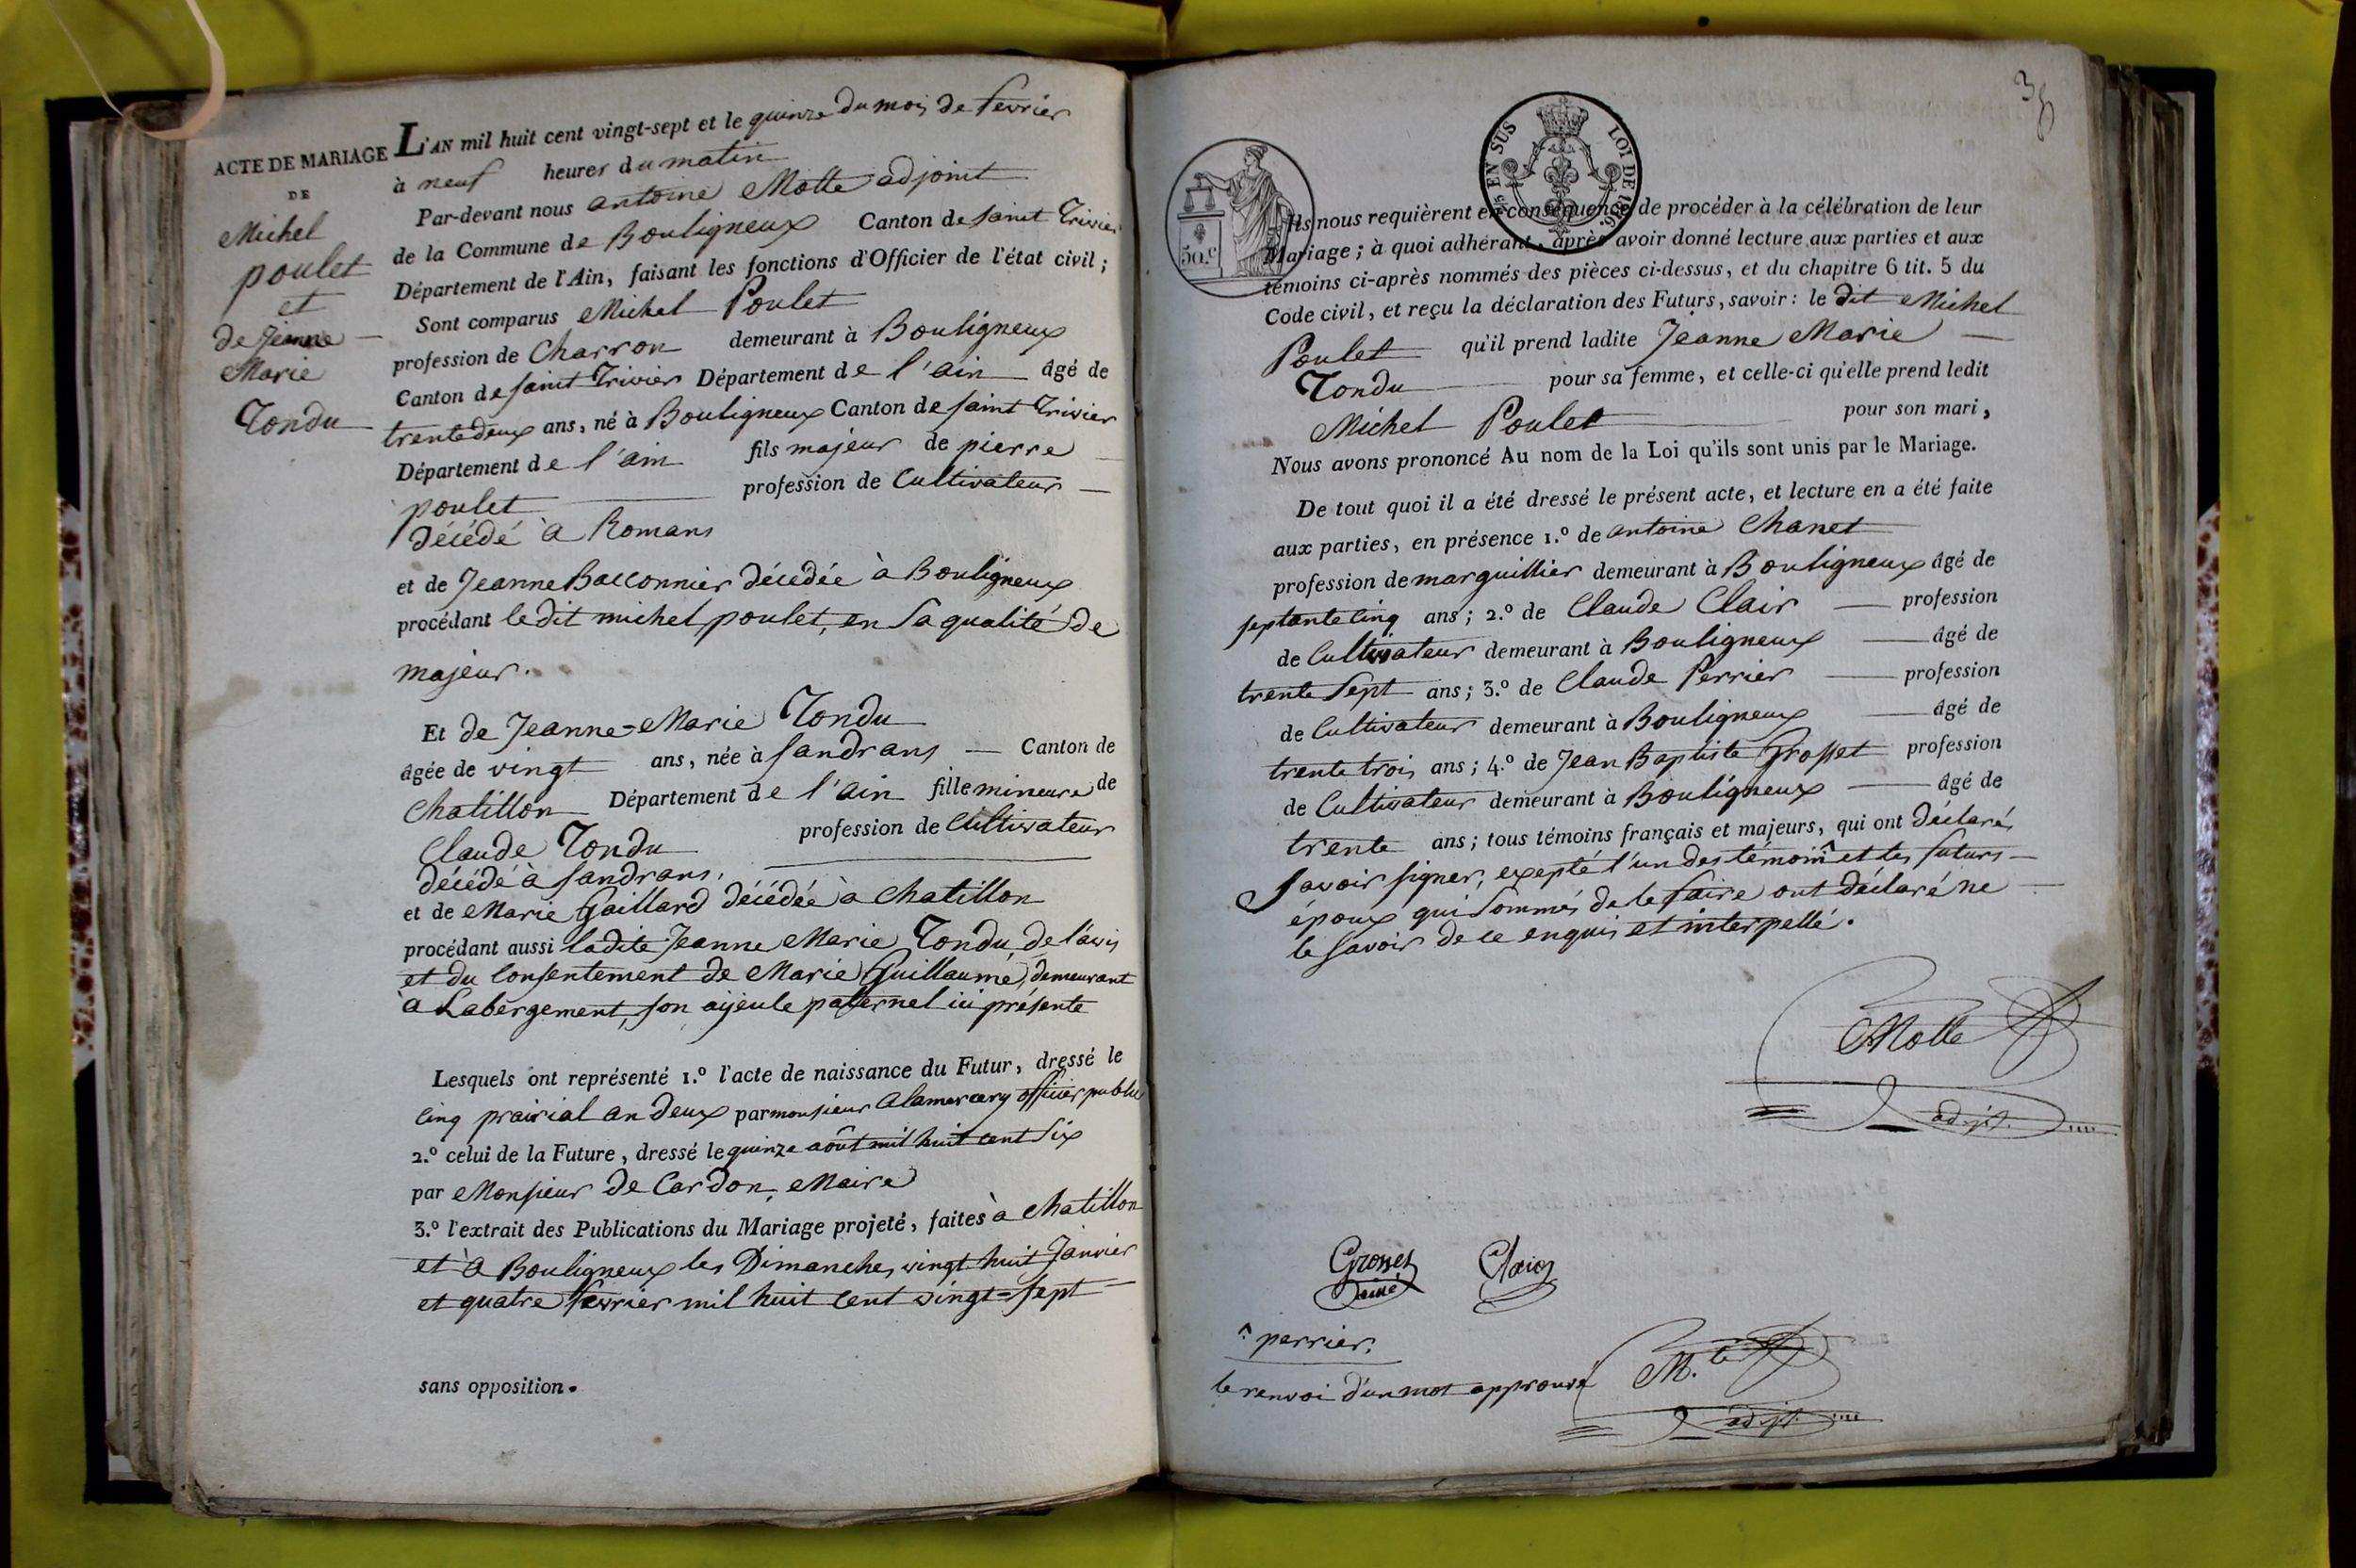 ACTE DE MARIAGE
DE
Michel
poulet
et
de Jeanne
Marie
Tondu
L'AN mil huit cent vingt-sept et le quinze du mois de fevrier
à neuf heures du matin
Par-devant nous antoine Motte adjoint
de la Commune de Bouligneux Canton de saint Trivier
Département de l'Ain, faisant les fonctions d'Officier de l'état civil;
Sont comparus Michel Poulet
profession de Charron demeurant à Bouligneux
Canton de saint Trivier Département de l'ain âgé de
trente deux ans, né à Bouligneux Canton de saint Trivier
Département de l'ain fils majeur de pierre
poulet profession de Cultivateur
décédé à Romans
et de Jeanne Bacconnier décédée à Bouligneux
procédant le dit michel poulet, en sa qualité de
majeur.
Et de Jeanne=Marie Tondu
âgée de vingt ans, née à sandrans Canton de
Chatillon Département de l'ain fille mineure de
Claude Tondu profession de Cultivateur
décédé à sandrans,
et de Marie Gaillard décédée à Chatillon
procédant aussi ladite Jeanne Marie Tondu, de l'avis
et du Consentement de Marie Guillaume, demeurant
à Labergement, son aijeule paternel ici présente
Lesquels ont représenté 1.º l'acte de naissance du Futur, dressé le
cinq prairial an deux par monsieur Alamercery officier public
2.º celui de la Future, dressé le quinze août mil huit cent six
par Monsieur de Cardon, Maire
3.º l'extrait des Publications du Mariage projeté, faites à Chatillon
et à Bouligneux les Dimanches vingt huit Janvier
et quatre fevrier mil huit cent vingt=sept
sans opposition.
38
5 EN SUS LOI DE 1816.
50.c
Ils nous requièrent en conséquence de procéder à la célébration de leur
Mariage; à quoi adhérant, après avoir donné lecture aux parties et aux
témoins ci-après nommés des pièces ci-dessus, et du chapitre 6 tit. 5 du
Code civil, et reçu la déclaration des Futurs, savoir: le dit Michel
Poulet qu'il prend ladite Jeanne Marie
Tondu pour sa femme, et celle-ci qu'elle prend ledit
Michel Poulet pour son mari,
Nous avons prononcé Au nom de la Loi qu'ils sont unis par le Mariage.
De tout quoi il a été dressé le présent acte, et lecture en a été faite
aux parties, en présence 1.º de antoine Chanet
profession de marguillier demeurant à Bouligneux âgé de
septante cinq ans; 2.º de Claude Clair profession
de Cultivateur demeurant à Bouligneux âgé de
trente sept ans; 3.º de Claude Perrier profession
de Cultivateur demeurant à Bouligneux âgé de
trente trois ans; 4.º de Jean Baptiste Grosset profession
de Cultivateur demeurant à Bouligneux âgé de
trente ans; tous témoins français et majeurs, qui ont déclaré
savoir signer, excepté l'un des témoins ^ et les futurs
époux qui sommés de le faire ont déclaré ne
le savoir de ce enquis et interpellé.
Motte
adjt.
Grosset Clair
ainé
^ perrier.
le renvoi d'un mot approuvé M.te
adjt.